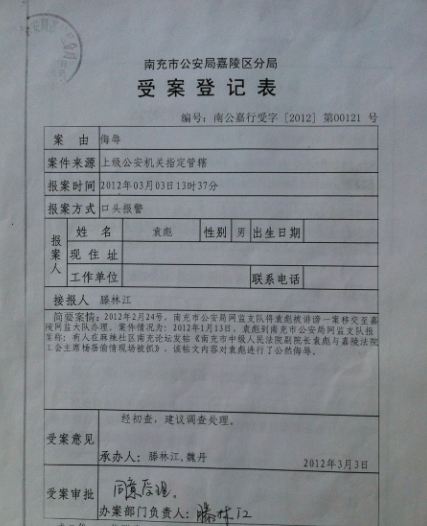 南充市公安局嘉陵区分局
受案登记表
编号：南公嘉行受字［2012］第00121 号
案 由 侮辱
案件来源 上级公安机关指定管辖
报案时间 2012年03月03日13时37分
报案方式 口头报警
报案人 姓 名 袁彪 性别 男 出生日期
现 住 址
工作单位 联系电话
接报人 滕林江
简要案情：2012年2月24号，南充市公安局网监支队将袁彪被诽谤一案移交至嘉
陵网监大队办理。案件情况为：2012年1月13日，袁彪到南充市公安局网监支队报
案称：有人在麻辣社区南充论坛发帖《南充市中级人民法院副院长袁彪与嘉陵法院
工会主席杨 偷情现场被抓》，该帖文内容对袁彪进行了公然侮辱。
经初查，建议调查处理。
受案意见
承办人：滕林江,魏丹 2012年3月3日
受案审批 同意受理。
办案部门负责人：滕林江